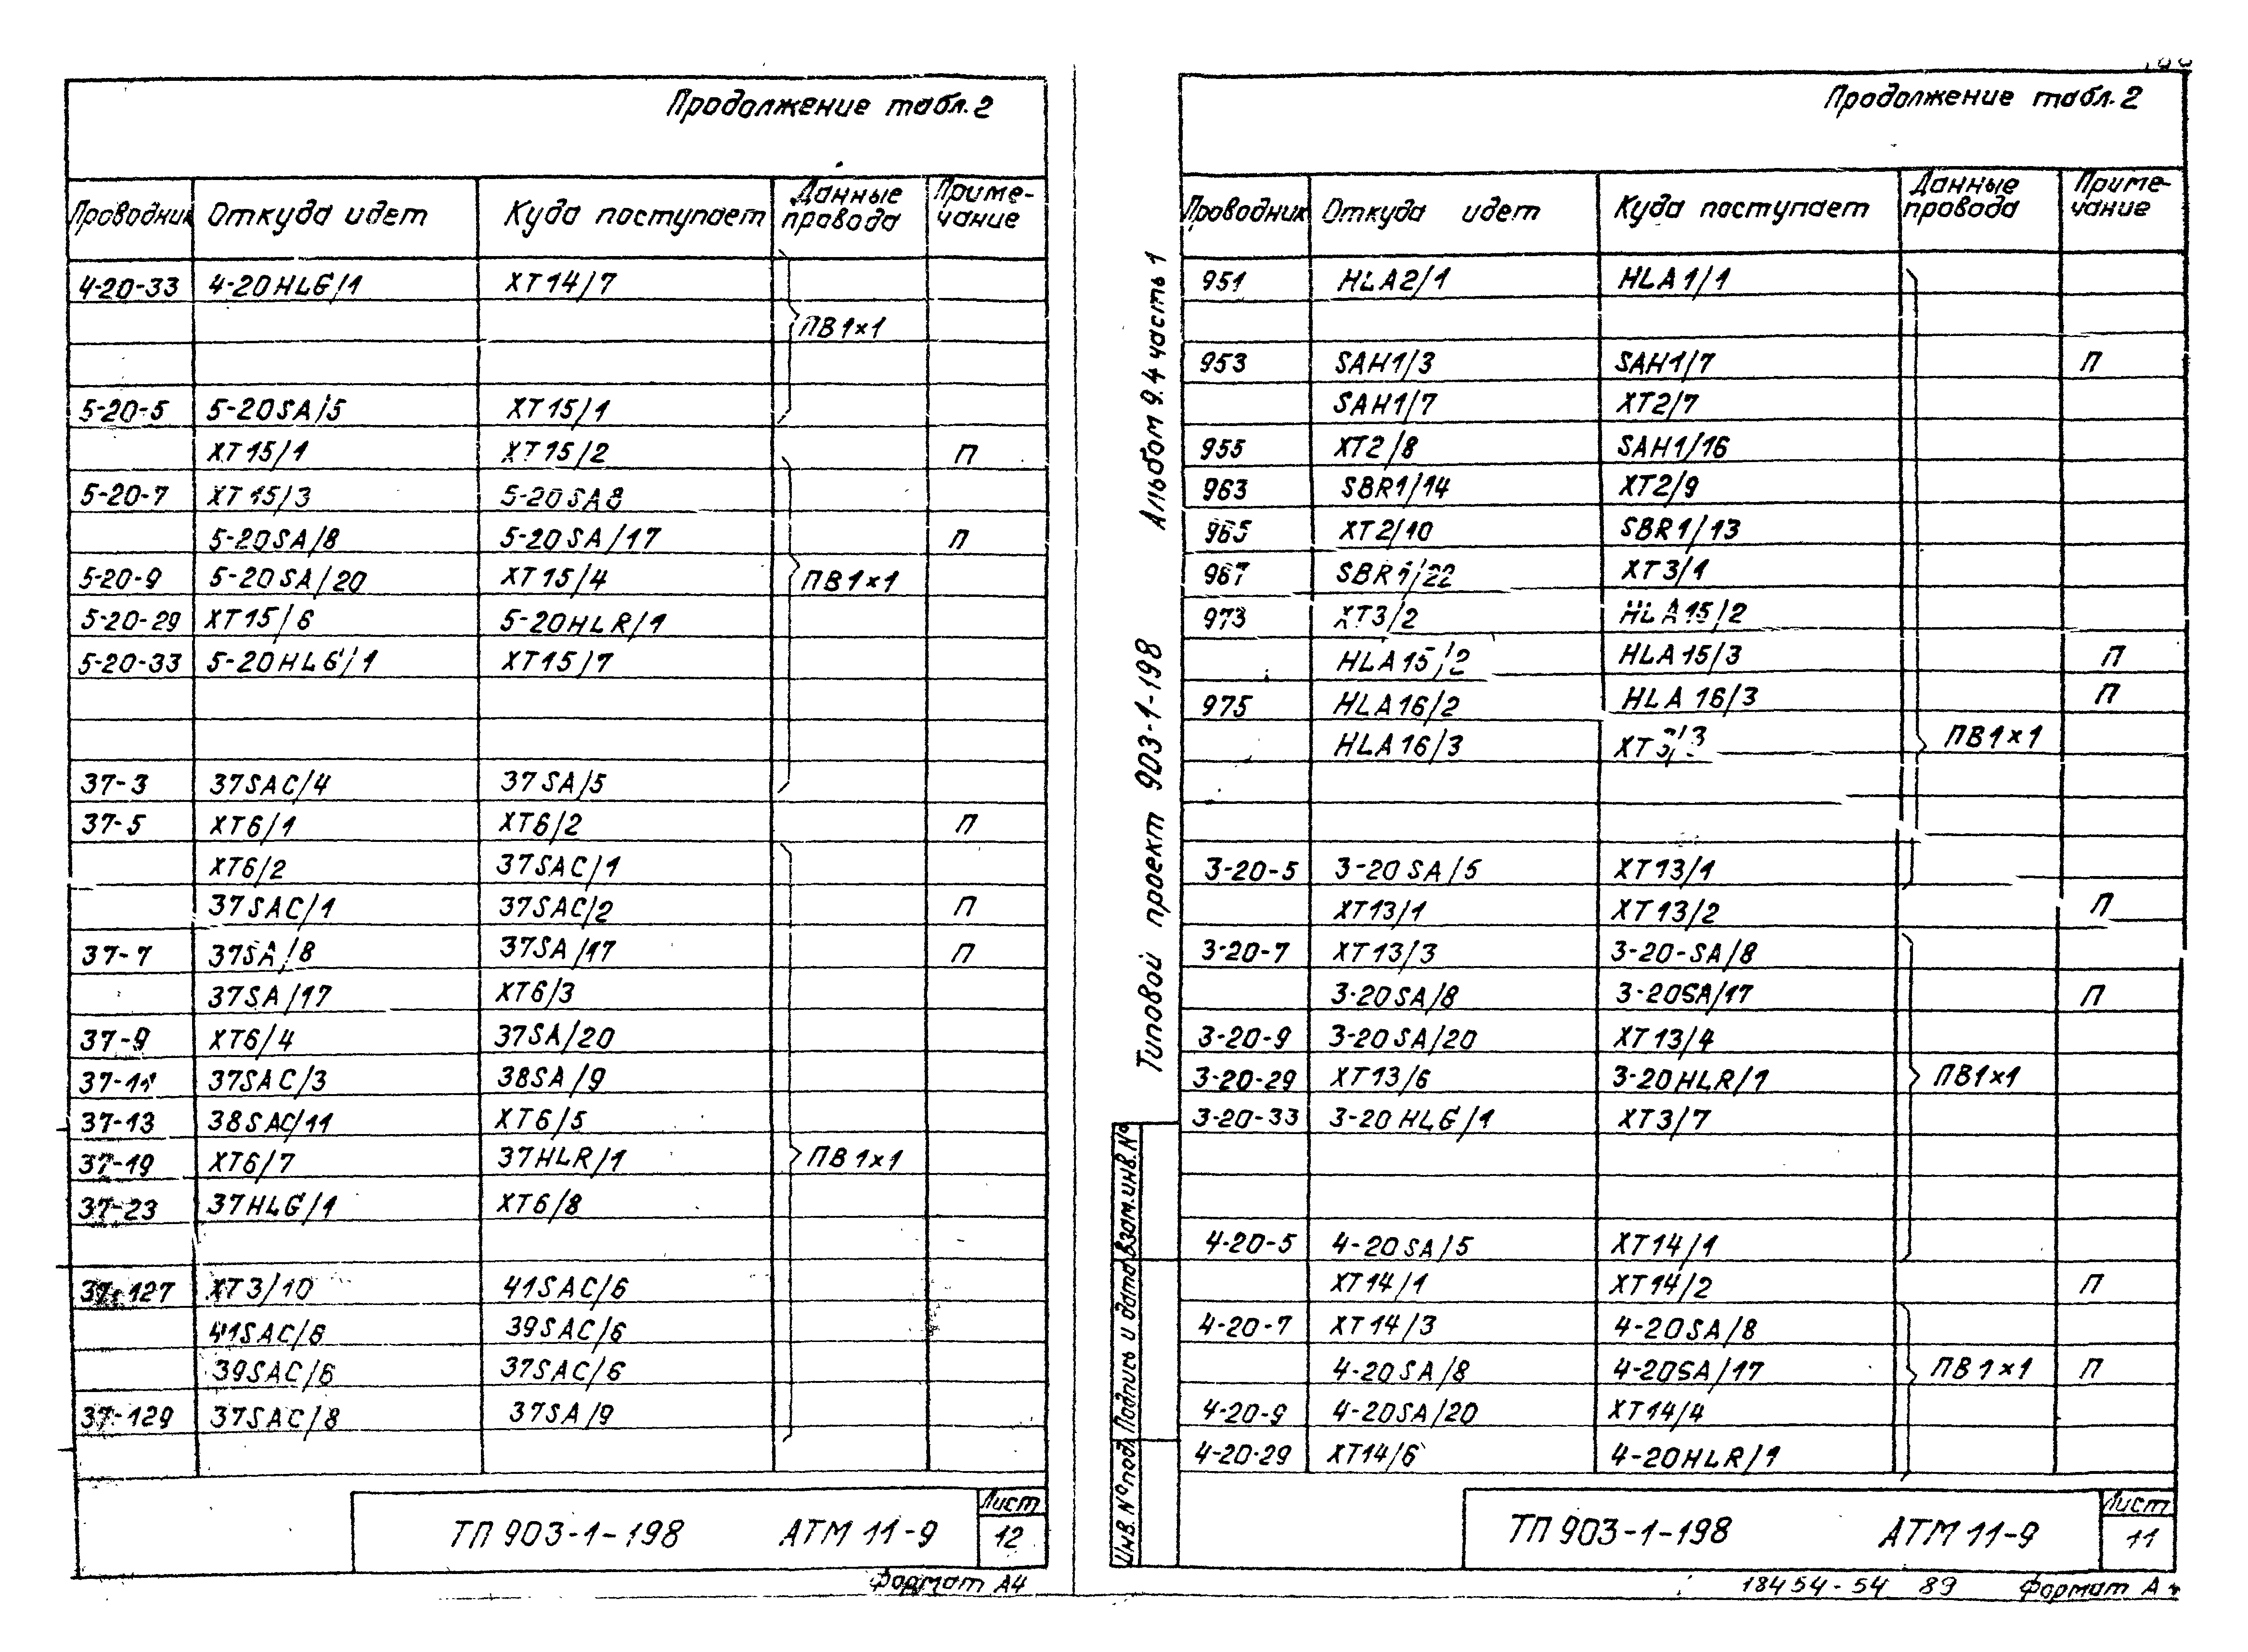 Продолжение табл. 2
Проводник Откуда идет Куда поступает Данные провода Приме-чание
4-20-33 4-20HLG/1 XT14/7
ПВ1×1
5-20-5 5-20SA/5 XT15/1
XT15/1 XT15/2 П
5-20-7 XT15/3 5-20SA8
5-20SA/8 5-20SA/17 П
5-20-9 5-20SA/20 XT15/4 ПВ1×1
5-20-29 XT15/6 5-20HLR/1
5-20-33 5-20HLG/1 XT15/7
37-3 37SAC/4 37SA/5
37-5 XT6/1 XT6/2 П
XT6/2 37SAC/1
37SAC/1 37SAC/2 П
37-7 37SA/8 37SA/17 П
37SA/17 XT6/3
37-9 XT6/4 37SA/20
37-11 37SAC/3 38SA/9
37-13 38SAC/11 XT6/5
37-19 XT6/7 37HLR/1 ПВ1×1
37-23 37HLG/1 XT6/8
37-127 XT3/10 41SAC/6
41SAC/6 39SAC/6
39SAC/6 37SAC/6
37-129 37SAC/8 37SA/9
ТП 903-1-198 АТМ 11-9 Лист 12
Формат А4
Продолжение табл. 2
Проводник Откуда идет Куда поступает Данные провода Приме-чание
951 HLA2/1 HLA1/1
953 SAH1/3 SAH1/7 П
SAH1/7 XT2/7
955 XT2/8 SAH1/16
963 SBR1/14 XT2/9
965 XT2/10 SBR1/13
967 SBR1/22 XT3/1
973 XT3/2 HLA15/2
HLA15/2 HLA15/3 П
975 HLA16/2 HLA16/3 П
HLA16/3 XT3/3 ПВ1×1
3-20-5 3-20SA/5 XT13/1
XT13/1 XT13/2 П
3-20-7 XT13/3 3-20-SA/8
3-20SA/8 3-20SA/17 П
3-20-9 3-20SA/20 XT13/4
3-20-29 XT13/6 3-20HLR/1 ПВ1×1
3-20-33 3-20HLG/1 XT3/7
4-20-5 4-20SA/5 XT14/1
XT14/1 XT14/2 П
4-20-7 XT14/3 4-20SA/8
4-20SA/8 4-20SA/17 ПВ1×1 П
4-20-9 4-20SA/20 XT14/4
4-20-29 XT14/6 4-20HLR/1
ТП 903-1-198 АТМ 11-9 Лист 11
18454-54 89 Формат А4
Типовой проект 903-1-198 Альбом 9.4 часть 1
Инв. № подл. Подпись и дата Взам. инв. №